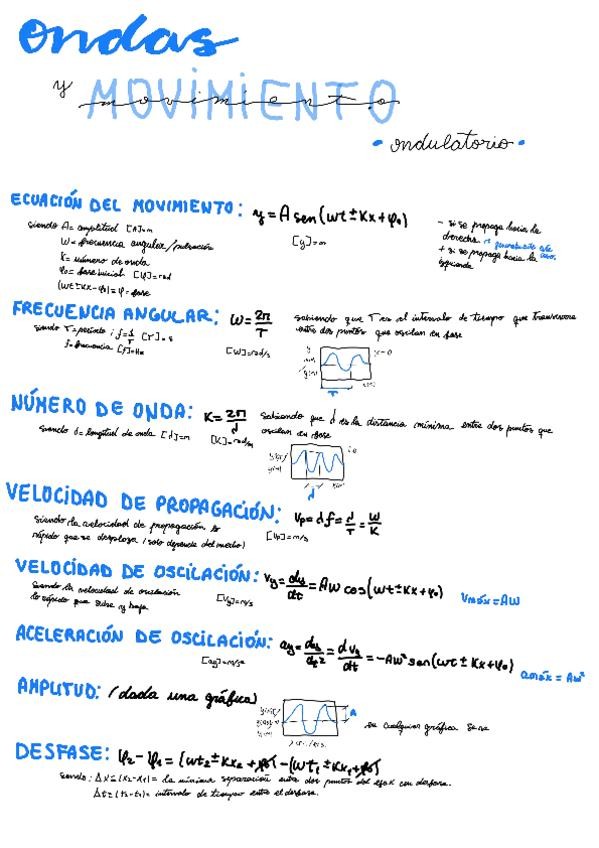 ondas
y MOVIMIENTO
movimiento
• ondulatorio •
ECUACIÓN DEL MOVIMIENTO: y = A sen(wt ± Kx + φ₀)
siendo A = amplitud [A]=m
W = frecuencia angular/pulsación
K = número de onda
φ₀ = fase inicial [φ]=rad
(wt ± Kx - φ₀) = φ = fase
[y]=m
- si se propaga hacia la
derecha
+ si se propaga hacia la
izquierda
FRECUENCIA ANGULAR: W = 2π/T
siendo T = periodo ; f = 1/T [T]=s
f = frecuencia [f]=Hz
[W]=rad/s
sabiendo que T es el intervalo de tiempo que transcurre
entre dos puntos que oscilan en fase
y
x=0
T
NÚMERO DE ONDA: K = 2π/d
siendo d = longitud de onda [d]=m
[K]=rad/m
sabiendo que d es la distancia mínima entre dos puntos que
oscilan en fase
d
VELOCIDAD DE PROPAGACIÓN: Vp = d f = d/T = W/K
siendo la velocidad de propagación lo
rápido que se desplaza (solo depende del medio)
[Vp]=m/s
VELOCIDAD DE OSCILACIÓN: Vy = dy/dt = AW cos(wt ± Kx + φ₀)
siendo la velocidad de oscilación
lo rápido que sube y baja
[Vy]=m/s
Vmáx = AW
ACELERACIÓN DE OSCILACIÓN: ay = dy/dt² = dVy/dt = -AW² sen(wt ± Kx + φ₀)
amáx = AW²
AMPLITUD: (dada una gráfica)
A
en cualquier gráfica
DESFASE: φ₂ - φ₁ = (wt₂ ± Kx₂ + φ₀) - (wt₁ ± Kx₁ + φ₀)
siendo: Δx = (x₂-x₁) = la mínima separación entre dos puntos del eje x con desfase.
Δt = (t₂-t₁) = intervalo de tiempo entre el desfase.